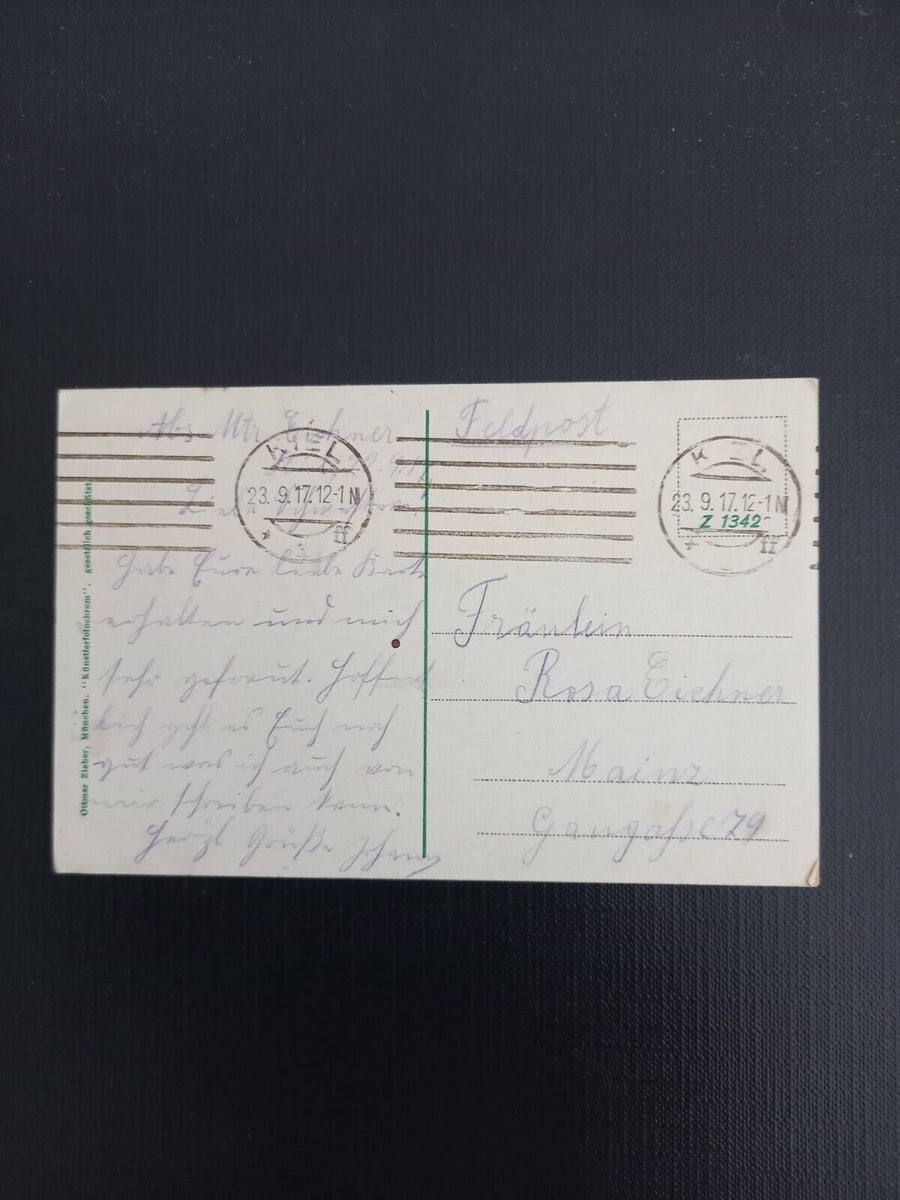 Abs. Mtr. Eichner
Liebe Schwester!
Habe Eure liebe Karte
erhalten und mich
sehr gefreut. Hoffent
lich geht es Euch noch
gut was ich auch von
mir schreiben kann.
Herzl Grüße Johann
Ottmar Zieher, München, "Künstlerfotochrom", gesetzlich geschützt.
KIEL
23.9.17.12-1N
ff
Feldpost
KIEL
23.9.17.12-1N
Z 1342
ff
Fräulein
Rosa Eichner
Mainz
Gaugasse 79